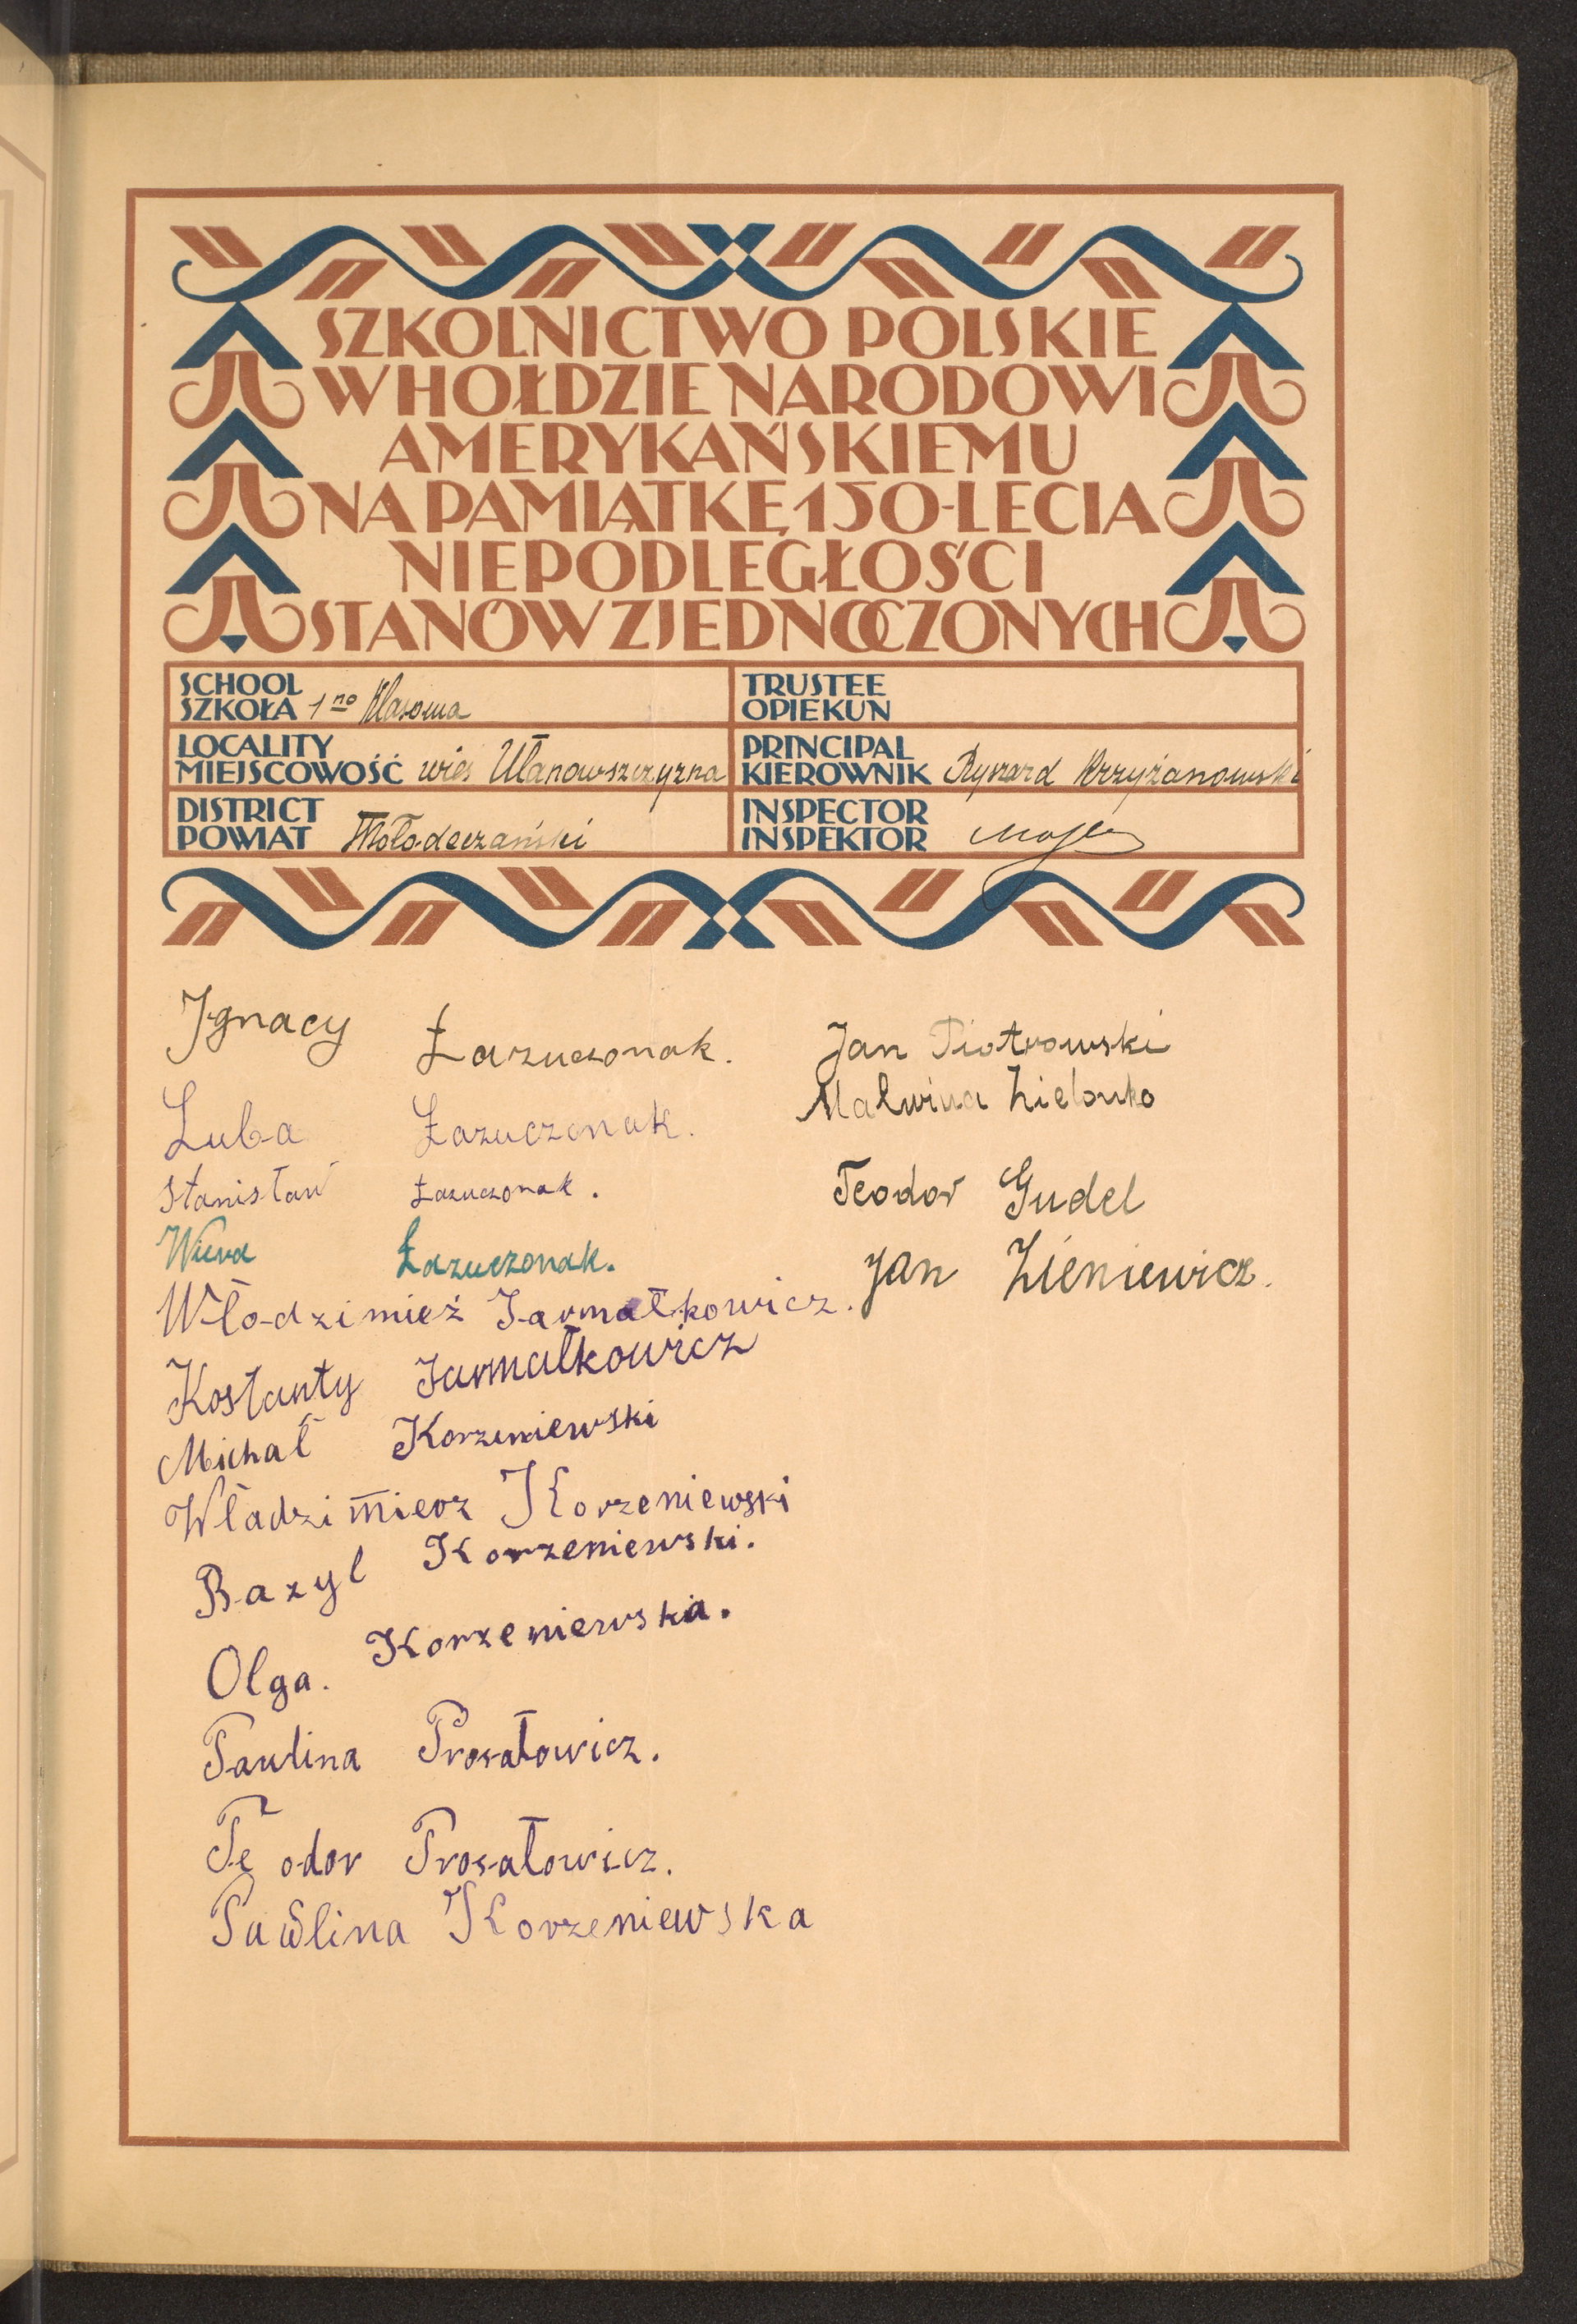 SZKOLNICTWO POLSKIE
W HOŁDZIE NARODOWI
AMERYKAŃSKIEMU
NA PAMIĄTKĘ 150-LECIA
NIEPODLEGŁOŚCI
STANÓW ZJEDNOCZONYCH
SCHOOL
SZKOŁA 1 no Klasowa
TRUSTEE
OPIEKUN
LOCALITY
MIEJSCOWOŚĆ wieś Ułanowszczyzna
PRINCIPAL
KIEROWNIK Ryszard Krzyżanowski
DISTRICT
POWIAT Mołodeczański
INSPECTOR
INSPEKTOR
Ignacy Łazuczonak.
Luba Łazuczonak.
Stanisław Łazuczonak.
Wiera Łazuczonak.
Włodzimież Jarmałkowicz.
Kostanty Jarmałkowicz
Michał Korzeniewski
Władzimierz Korzeniewski
Bazyl Korzeniewski.
Olga. Korzeniewska.
Paulina Prosałowicz.
Teodor Prosałowicz.
Pawlina Korzeniewska
Jan Piotrowski
Malwina Zielonko
Teodor Gudel
Jan Zieniewicz.